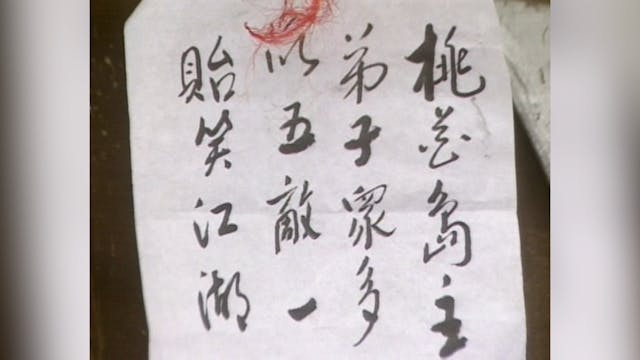 桃花島主
弟子眾多
以五敵一
貽笑江湖